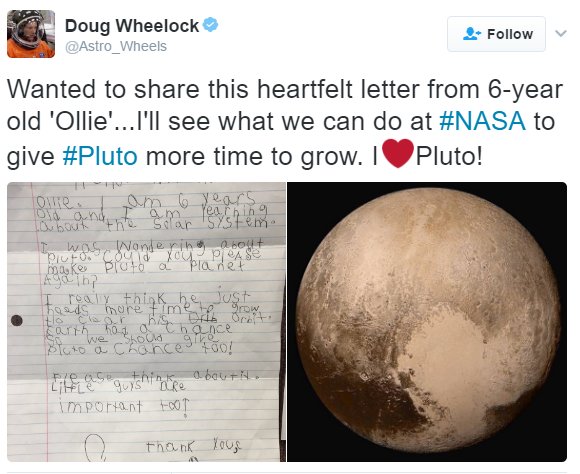 Doug Wheelock
@Astro_Wheels
Follow
Wanted to share this heartfelt letter from 6-year
old 'Ollie'...I'll see what we can do at #NASA to
give #Pluto more time to grow. I ❤ Pluto!
Ollie. I am 6 years
old and I am learning
about the solar system.
I was wondering about
pluto. Could you please
make Pluto a Planet
Again?
I really think he just
needs more time to grow
to clear his orbit.
Earth had a chance
so we should give
Pluto a chance too!
Please think about it.
Little guys are
important too!
Thank You,